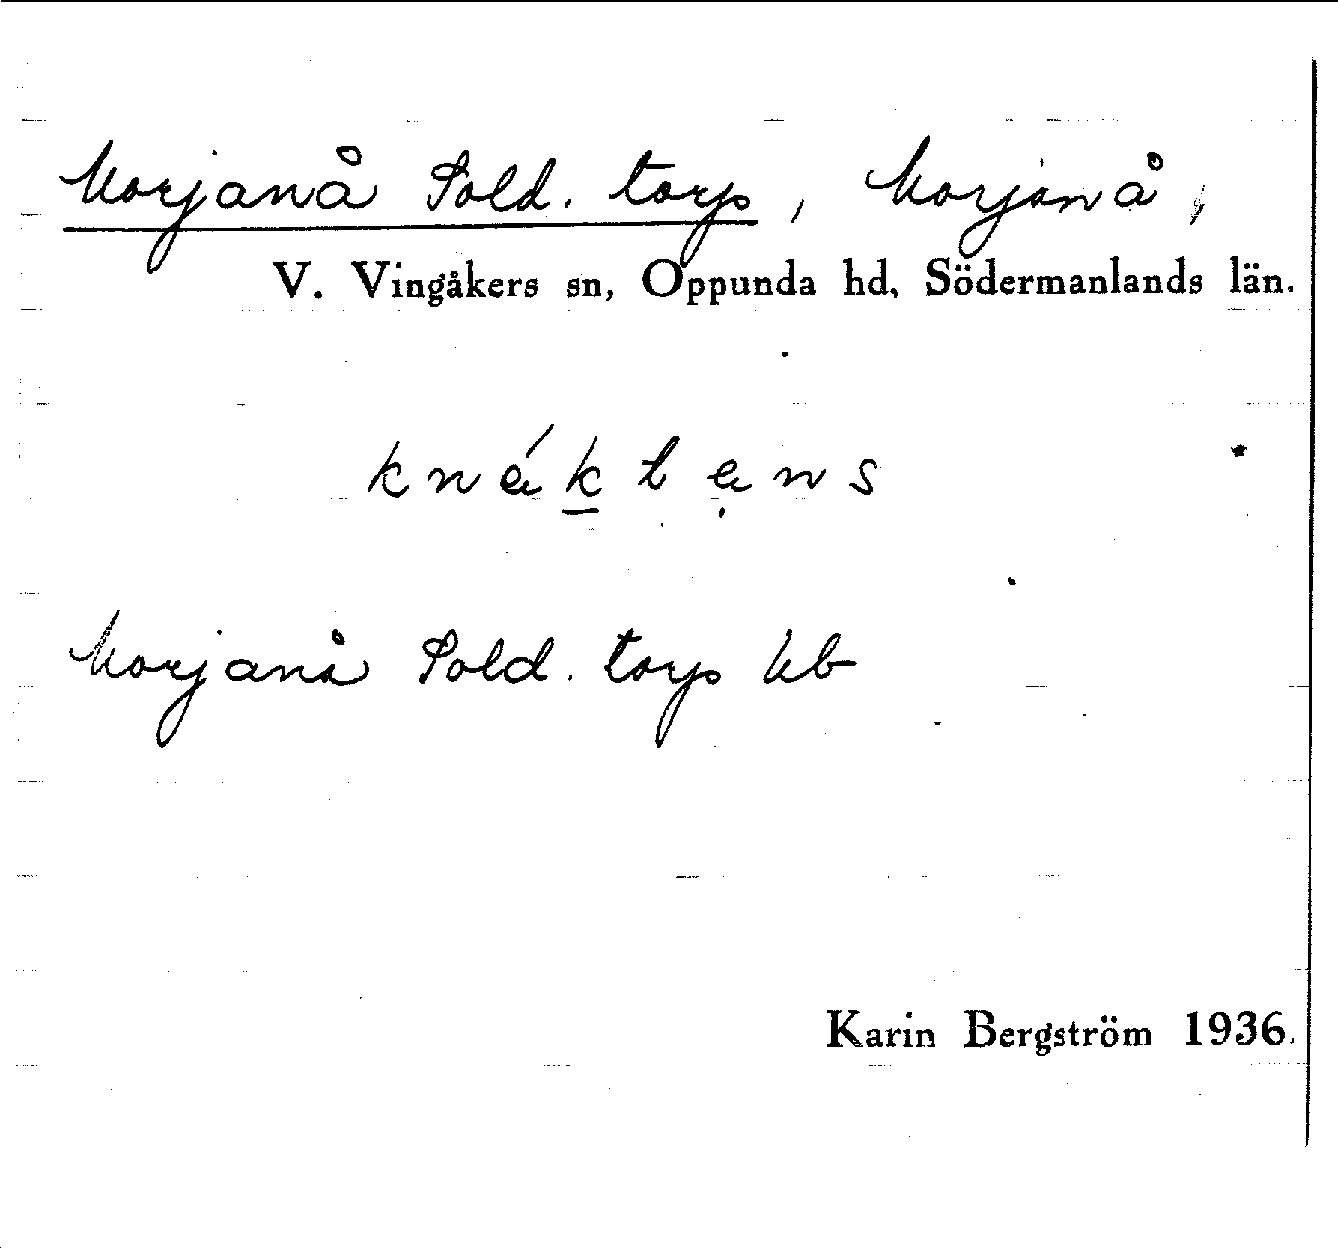 Morjanå Sold. torp, Morjanå,
V. Vingåkers sn, Oppunda hd, Södermanlands län.
knéktens
Morjanå Sold. torp kb
Karin Bergström 1936.